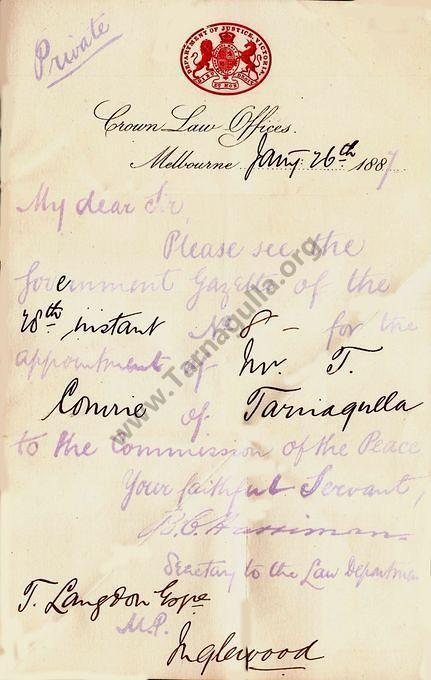 Private
DEPARTMENT OF JUSTICE, VICTORIA.
Crown Law Offices.
Melbourne Jany. 26th 1887
My dear Sir,
Please see the
Government Gazette of the
28th instant No 8 - for the
appointment of Mr. T.
Comrie of Tarnagulla
to the Commission of the Peace
Your faithful Servant,
Secretary to the Law Department
T. Langdon Esqre
M.P.
Inglewood
www.Tarnagulla.org